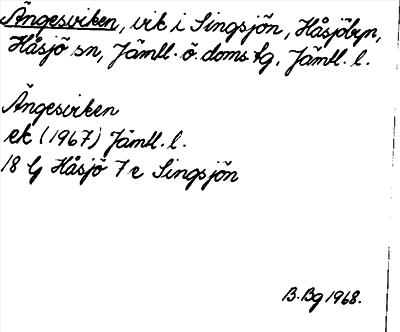 Ängesviken, vik i Singsjön, Håsjöbyn,
Håsjö sn, Jämtl. ö. doms tg. Jämtl. l.
Ängesviken
ek (1967) Jämtl. l.
18 G Håsjö 7 e Singsjön
B. Bg 1968.